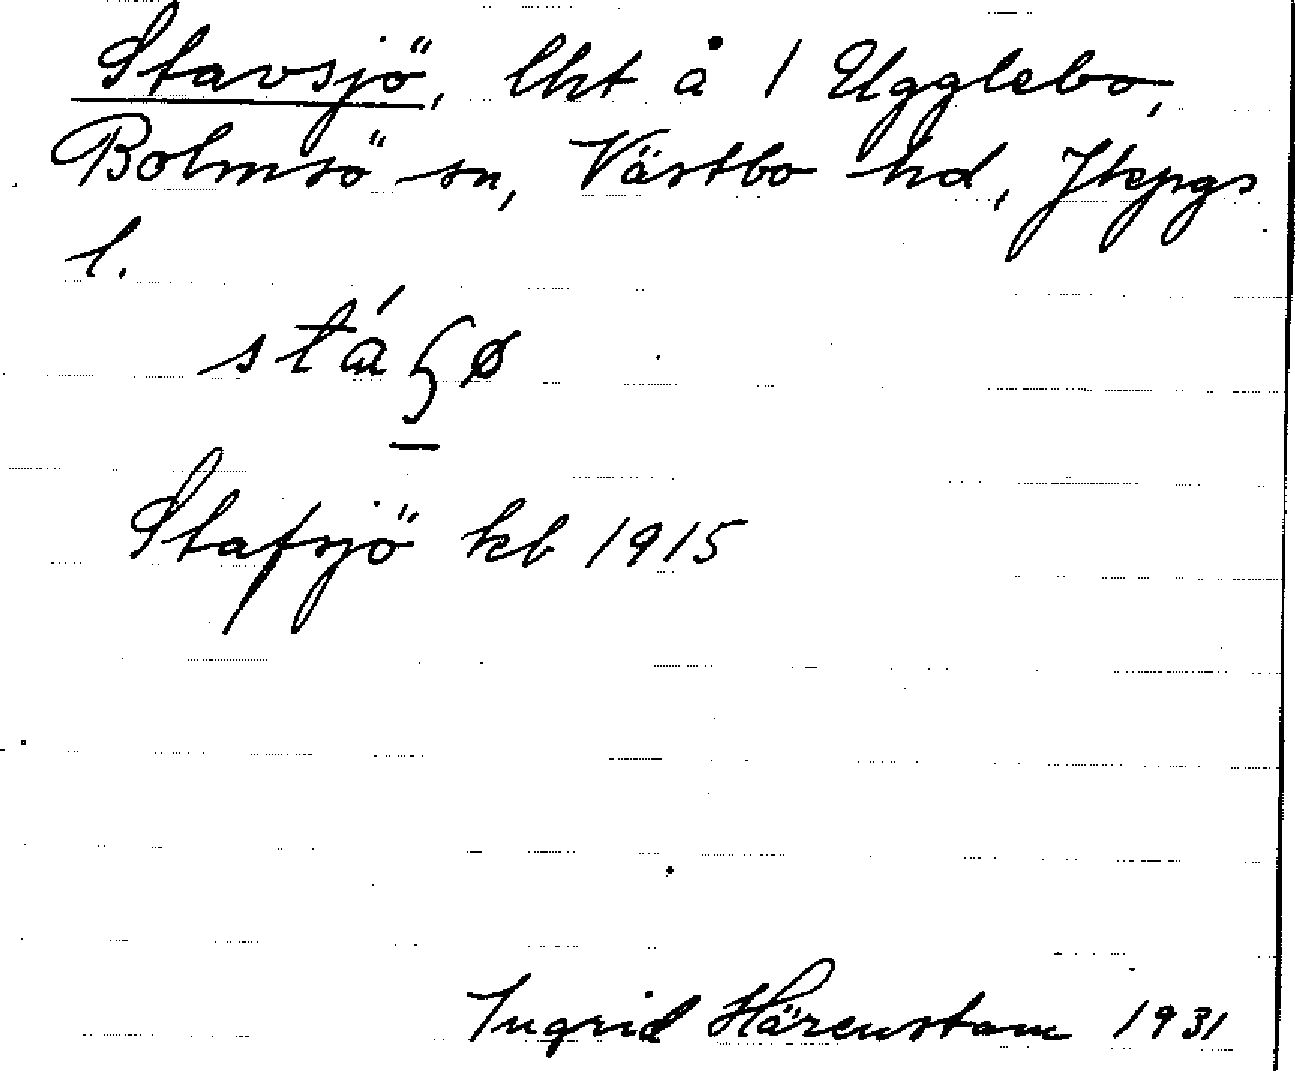 Stavsjö, lht å 1 Ugglebo,
Bolmsö sn, Västbo hd, Jkpgs
l.
Stafsjö kb 1915
Ingrid Härenstam 1931